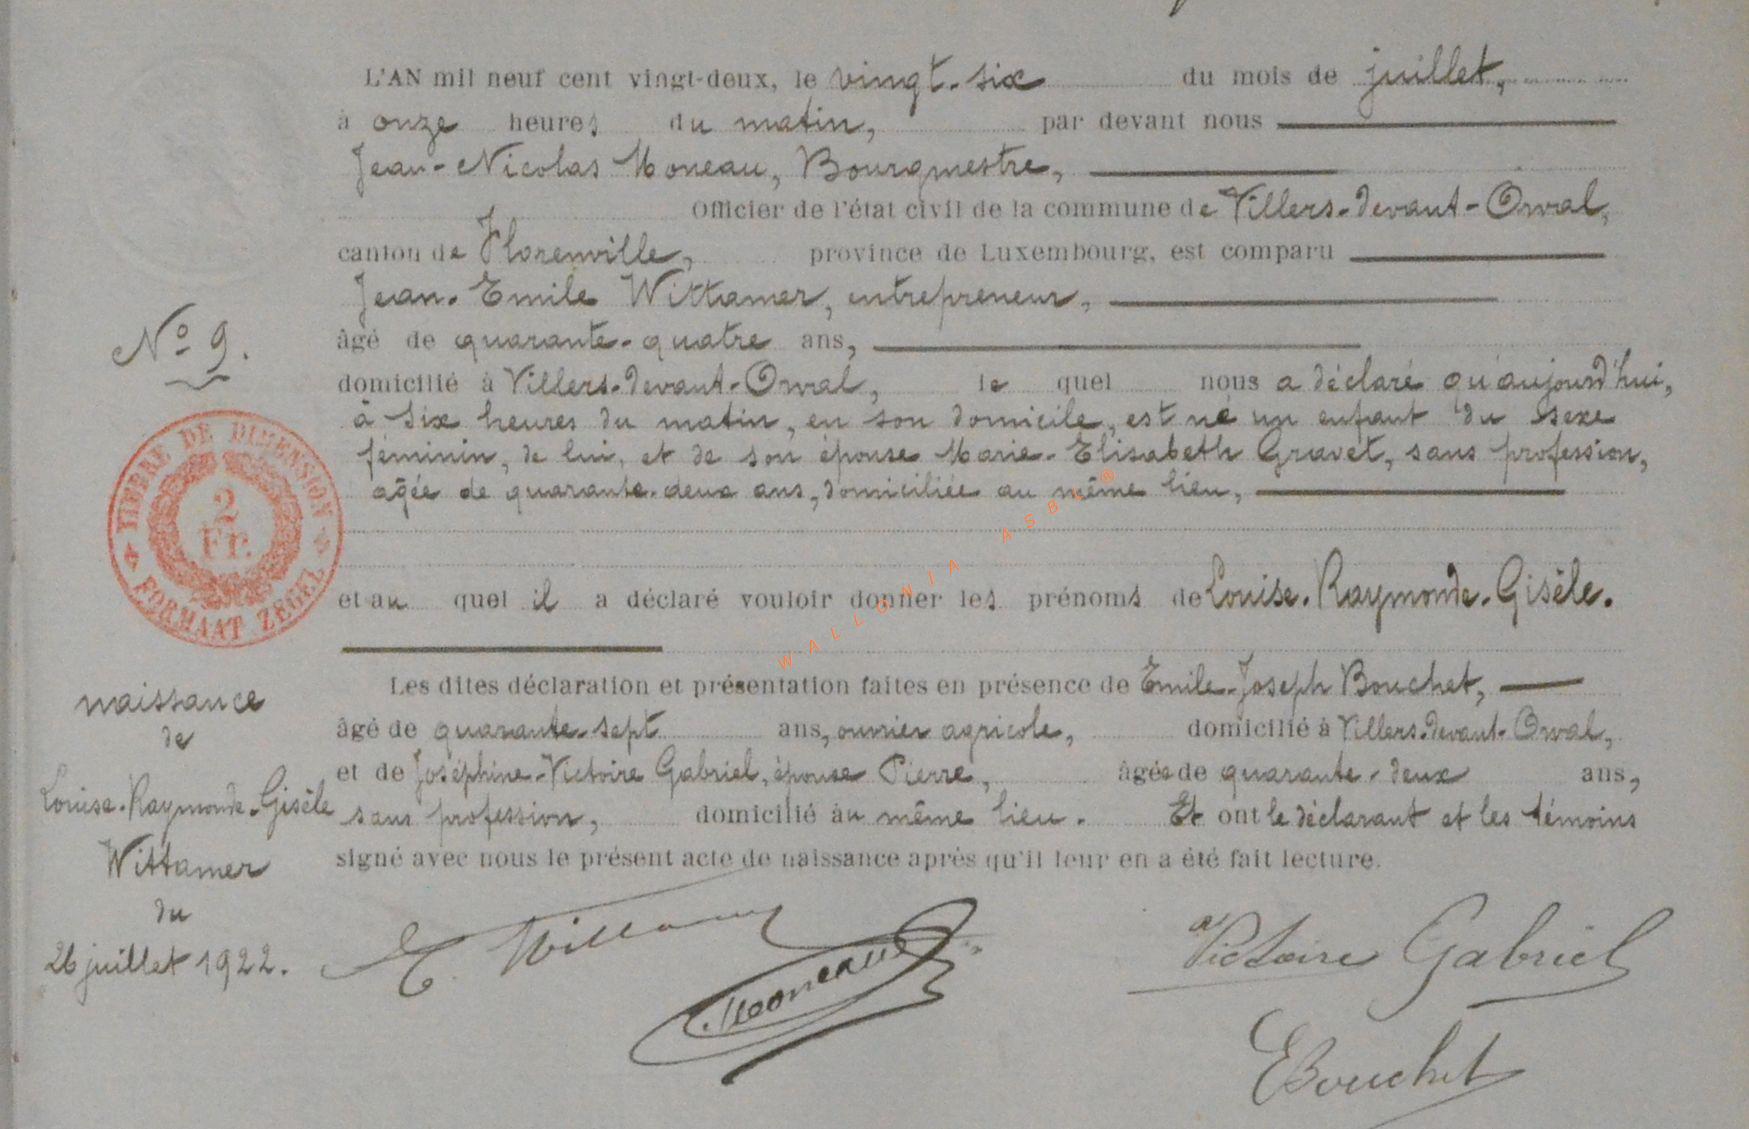 L'AN mil neuf cent vingt-deux, le vingt-six du mois de juillet,
à onze heures du matin, par devant nous
Jean-Nicolas Moneau, Bourgmestre,
Officier de l'état civil de la commune de Villers-devant-Orval,
canton de Florenville, province de Luxembourg, est comparu
Jean-Emile Wittamer, entrepreneur,
âgé de quarante-quatre ans,
domicilié à Villers-devant-Orval, le quel nous a déclaré qu'aujourd'hui,
à six heures du matin, en son domicile, est né un enfant du sexe
féminin, de lui, et de son épouse Marie-Elisabeth Gravet, sans profession,
agée de quarante-deux ans, domiciliée au même lieu,
et au quel il a déclaré vouloir donner les prénoms de Louise-Raymonde-Gisèle.
Les dites déclaration et présentation faites en présence de Emile-Joseph Bouchet,
âgé de quarante-sept ans, ouvrier agricole, domicilié à Villers-devant-Orval,
et de Joséphine-Victoire Gabriel, épouse Pierre, âgée de quarante-deux ans,
sans profession, domicilié au même lieu. Et ont le déclarant et les témoins
signé avec nous le présent acte de naissance après qu'il leur en a été fait lecture.
N° 9.
TIMBRE DE DIMENSION
2
Fr.
FORMAAT ZEGEL
naissance
de
Louise-Raymonde-Gisèle
Wittamer
du
26 juillet 1922.
WALLONIA ASBL ®
E. Wittamer
Moneau
Victoire Gabriel
E Bouchet